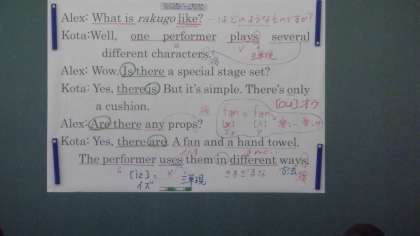 Alex: What is rakugo like? ーはどのようなものですか?
Kota: Well, one performer plays several
different characters.
Alex: Wow. Is there a special stage set?
Kota: Yes, there is. But it's simple. There's only
a cushion.
Alex: Are there any props?
Kota: Yes, there are. A fan and a hand towel.
The performer uses them in different ways.
S V 三単現
[iz] イズ
[ou] オウ
fan = fan
さまざまな 方法